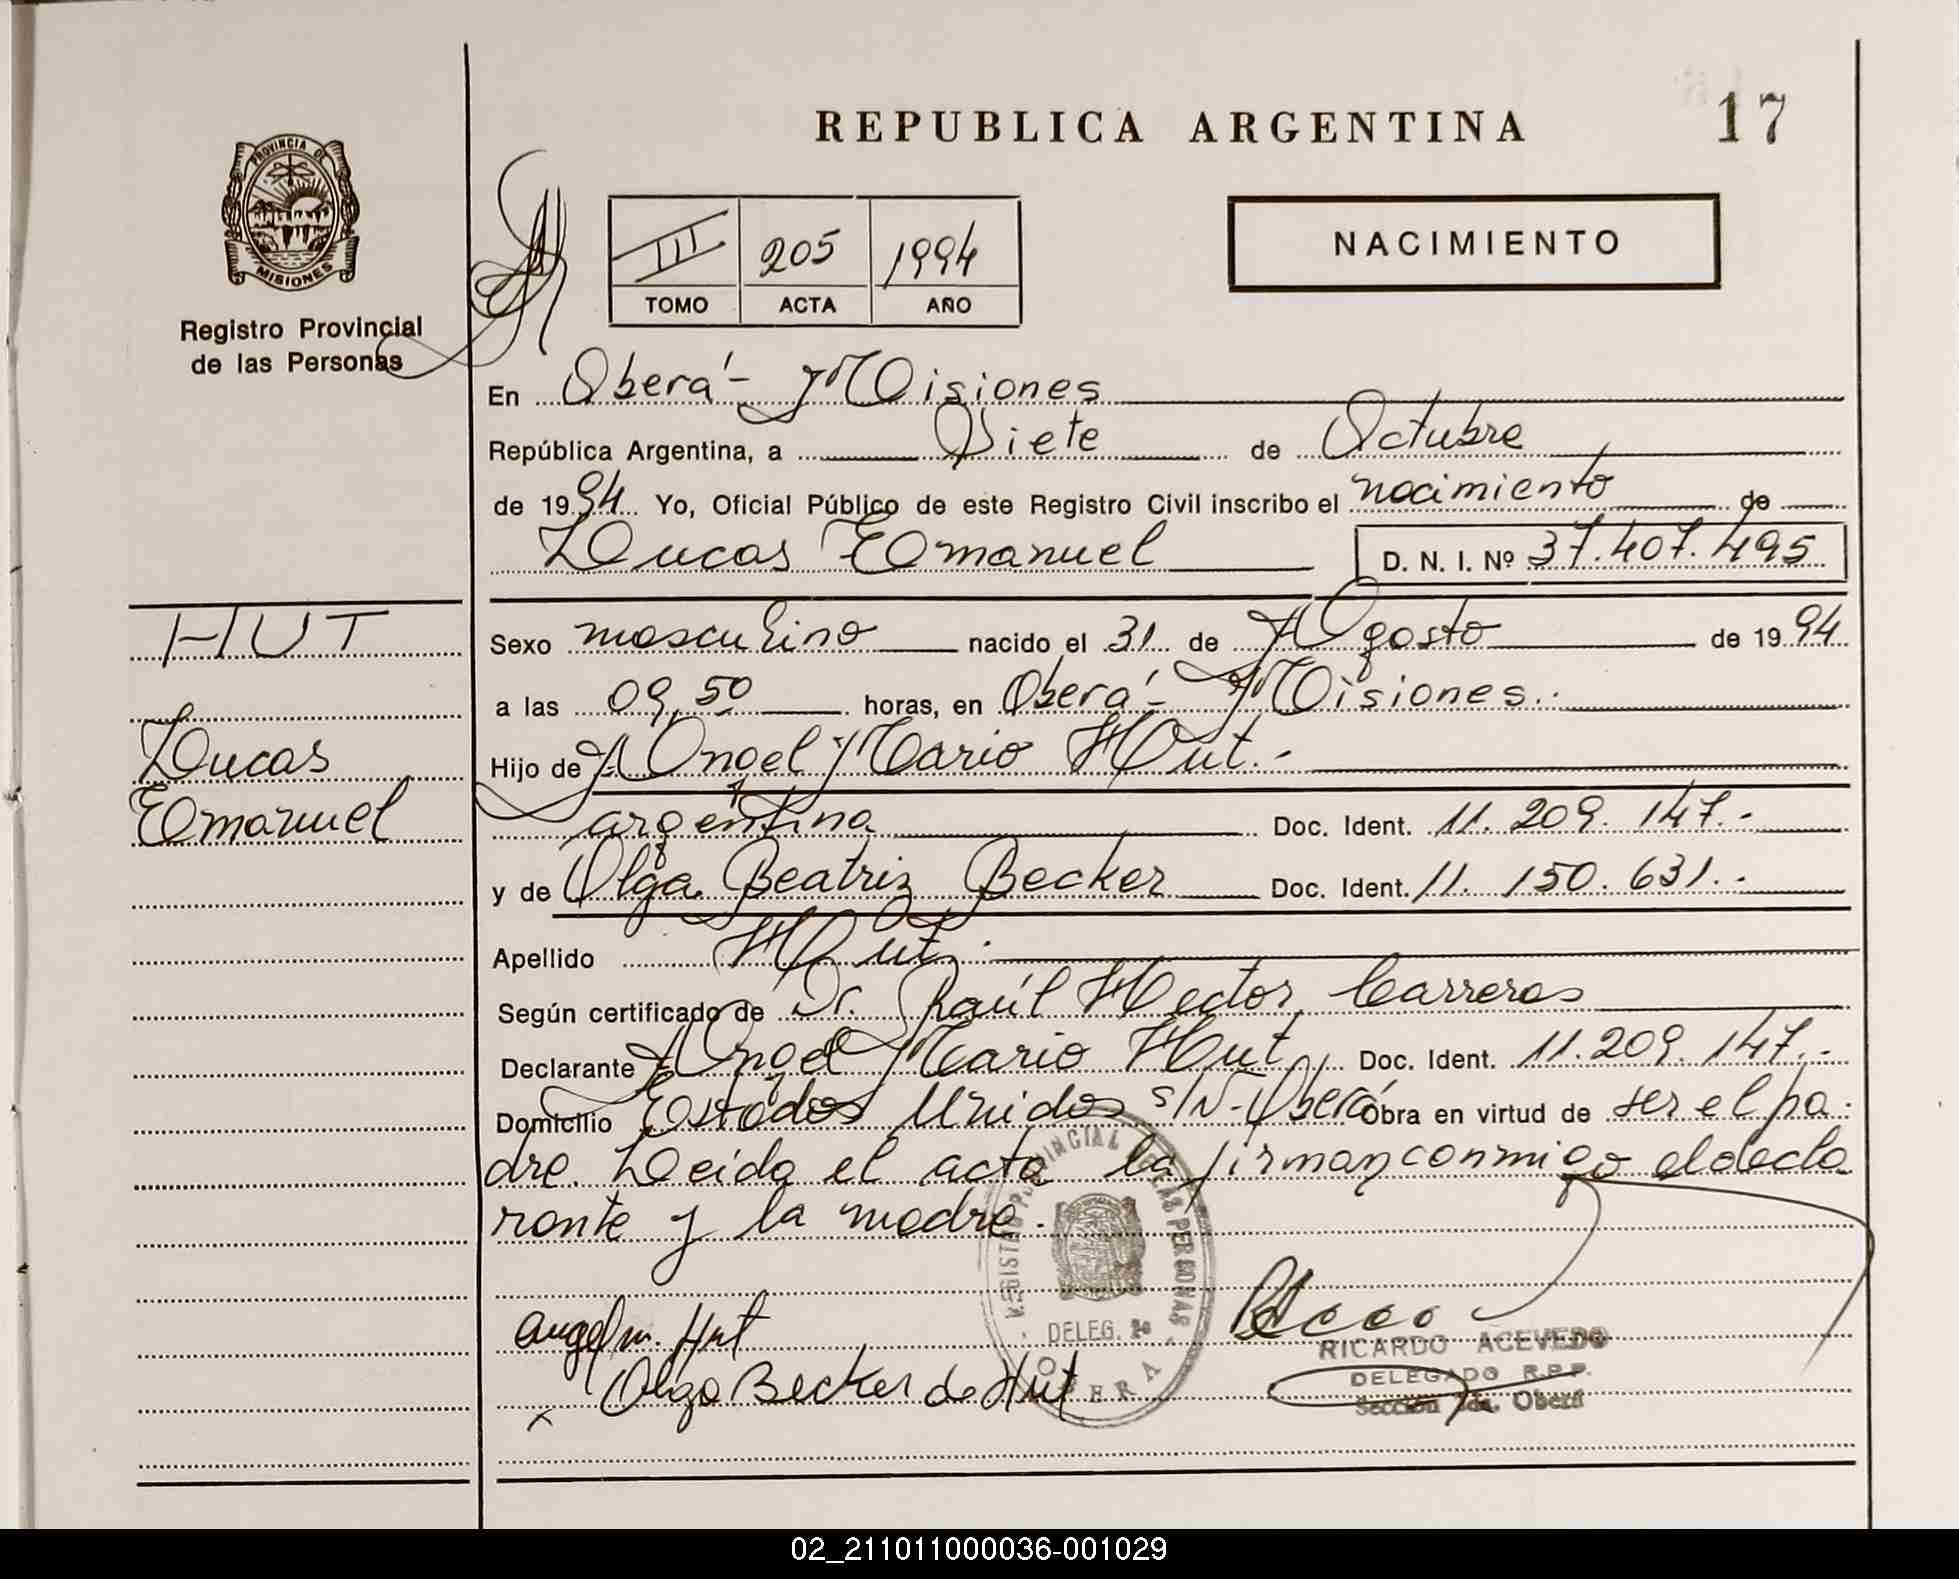 REPUBLICA ARGENTINA
17
PROVINCIA DE
MISIONES
Registro Provincial
de las Personas
III 205 1994
TOMO ACTA AÑO
NACIMIENTO
En Oberá - Misiones
República Argentina, a Siete de Octubre
de 1994 Yo, Oficial Público de este Registro Civil inscribo el nacimiento de
Lucas Emanuel D. N. I. Nº 37.407.495
HUT
Lucas
Emanuel
Sexo masculino nacido el 31 de Agosto de 1994
a las 09,50 horas, en Oberá - Misiones.
Hijo de Angel Mario Hut.-
argentina Doc. Ident. 11.209.147.-
y de Olga Beatriz Becker Doc. Ident. 11.150.631.-
Apellido Hut.
Según certificado de Dr. Raúl Hector Carreras
Declarante Angel Mario Hut Doc. Ident. 11.209.147.-
Domicilio Estados Unidos s/N - Oberá Obra en virtud de ser el pa-
dre. Leida el acta la firman conmigo el decla
rante y la madre.
REGISTRO PROVINCIAL DE LAS PERSONAS
DELEG. 2a
OBERA
Angel m. Hut
Olga Becker de Hut
RICARDO ACEVEDO
DELEGADO R.P.P.
Sección 2da. Oberá
02_211011000036-001029